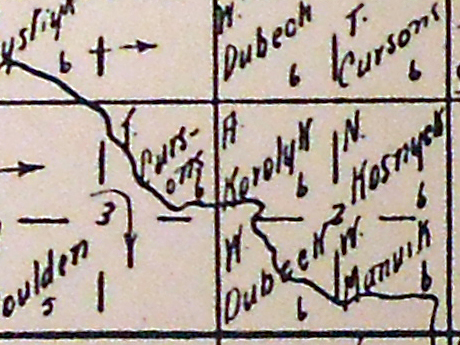 W.
Dubeck
6
T.
Cursons
6
6
T.
Curs-
ons
6
A.
Korolyk
6
N.
Kosnyck
6
3
2
W.
Dubeck
6
W.
Manuik
6
oulden
5